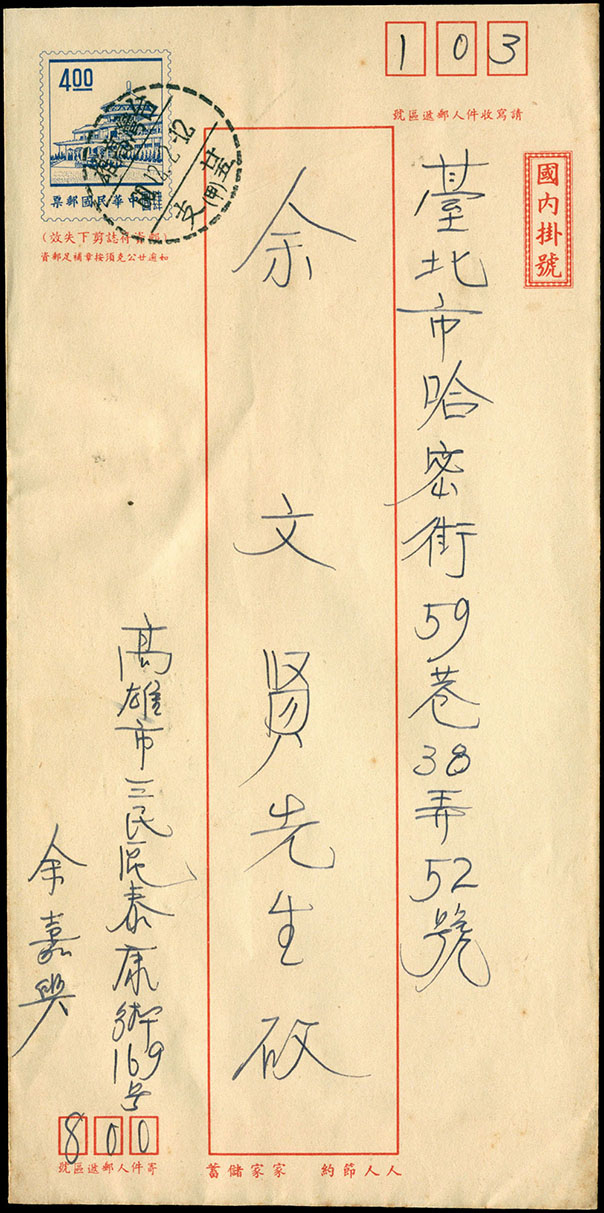 1 0 3
請寫收件人郵遞區號
國內掛號
臺北市哈密街59巷38弄52號
余文賢先生啟
4.00
中華民國郵票
(郵票符誌剪下失效)
如逾廿公克須按章補足郵資
廿五支(甲)
高雄市三民區泰康街169号
余嘉興
8 0 0
寄件人郵遞區號
人人節約 家家儲蓄